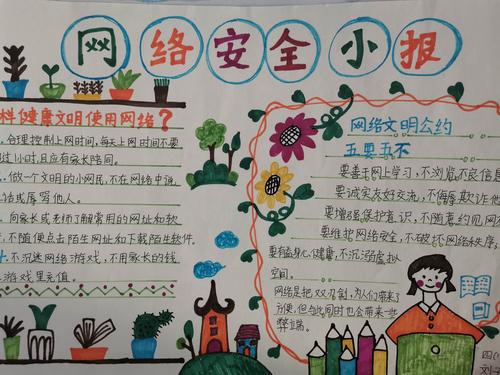 网络安全小报
科健康文明使用网络？
合理控制上网时间，每天上网时间不要
过1小时，且应有家长陪同。
做一个文明的小网民，不在网络中说
话或辱骂他人。
向家长或老师了解常用的网址和软
不随便点击陌生网址和下载陌生软件。
不沉迷网络游戏，不用家长的钱
游戏里充值。
网络文明公约
五要五不
要善于网上学习，不浏览不良信息
要诚实友好交流，不侮辱欺诈他
要增强保护意识，不随意约见网
要维护网络安全，不破坏网络秩序，
要有益身心健康，不沉溺虚拟
空间。
网络是把双刃剑，为人们带来了
方便，但与此同时也会带来一些
弊端。
四(
刘